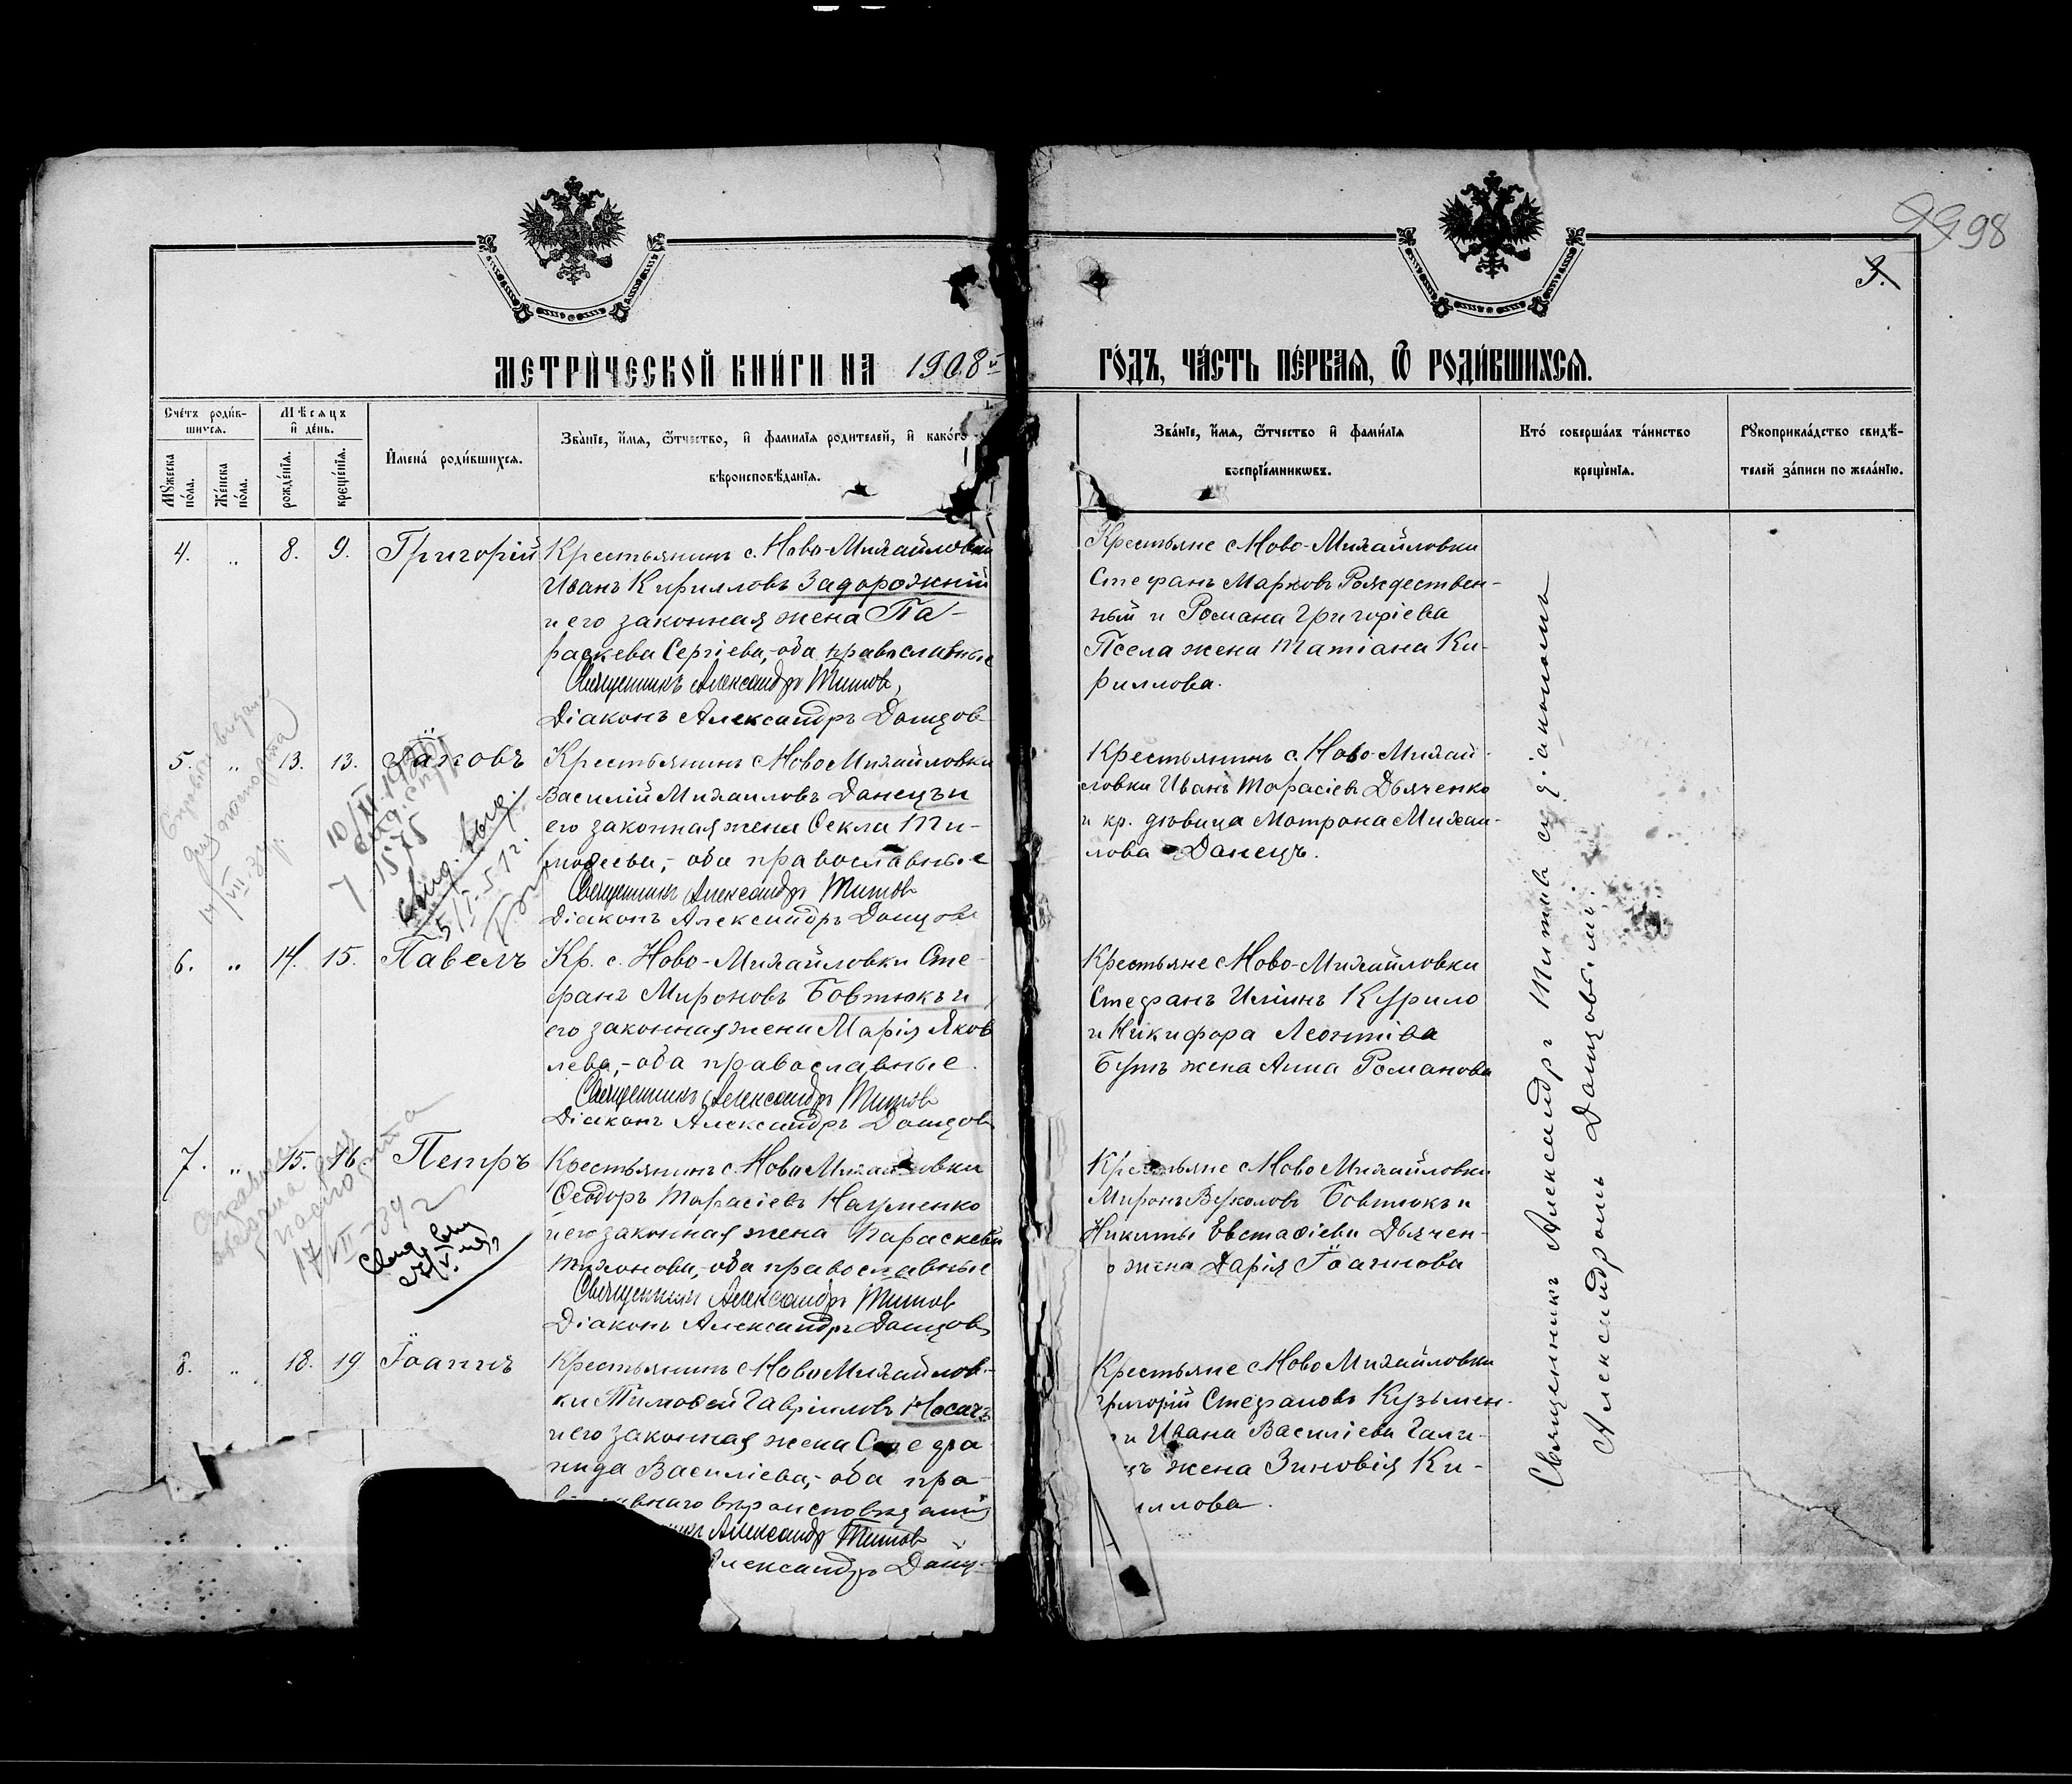 98
3.
МЕТРИЧЕСКОЙ КНИГИ НА 1908й ГОДЪ, ЧАСТЬ ПЕРВАЯ, Ѿ РОДИВШИХСЯ.
Счетъ родив-
шихся.
Мѣсяцъ
и день.
Мужеска
пола.
Женска
пола.
рожденія.
крещенія.
Имена родившихся.
Званіе, имя, ѿтчество, и фамилія родителей, и какого
вѣроисповѣданія.
Званіе, имя, ѿтчество и фамилія
воспріемниковъ.
Кто совершалъ таинство
крещенія.
Рукоприкладство свидѣ-
телей записи по желанію.
4. „ 8. 9. Григорій
Крестьянинъ с. Ново-Михайловки
Иванъ Кирилловъ Задорожній
и его законная жена Па-
раскева Сергіева,- оба православные
Священникъ Александръ Титовъ,
Діаконъ Александръ Донцов
Крестьяне с Ново-Михайловки
Стефанъ Марковъ Рождествен-
ный и Романа Григоріева
Псела жена Татіана Ки-
риллова.
5. „ 13. 13. Іаковъ
Крестьянинъ с Ново Михайловки
Василій Михаиловъ Данецъ и
его законная жена Ѳекла Ти-
моѳеева,- оба православные
Священникъ Александръ Титовъ
Діаконъ Александръ Донцовъ
Крестьянинъ с. Ново-Михай-
ловки Иванъ Тарасіевъ Дьяченко
и кр. дѣвица Матрона Михаи-
лова Данецъ.
6. „ 14. 15. Павелъ
Кр. с. Ново-Михайловки Сте-
фанъ Мироновъ Бовтюкъ и
его законная жена Марія Яков
лева,- оба православные.
Священникъ Александръ Титовъ
Діаконъ Александръ Донцовъ
Крестьяне с Ново-Михайловки
Стефанъ Иліинъ Курило
и Никифора Леонтіева
Бутъ жена Анна Романова
7. „ 15. 16. Петръ
Крестьянинъ с. Ново Михайловки
Ѳеодоръ Тарасіевъ Науменко
и его законная жена Параскева
Тихонова,- оба православные
Священникъ Александръ Титов
Діаконъ Александръ Донцовъ
Крестьяне с Ново Михайловки
Миронъ Бовтюкъ и
Никиты Евстафіева Дьячен-
о жена Дарія Іоаннова
8. „ 18. 19 Іоаннъ
Крестьянинъ с Ново Михайлов-
ки Тимоѳей Гавріиловъ Носачъ
и его законная жена Стефа-
нида Василіева,- оба пра-
вославнаго вѣроисповѣданія
Александръ Титовъ
Александръ Донц-
Крестьяне с Ново Михайловки
Григорій Стефановъ Кузьмен-
и Ивана Василіева Гали-
жена Зиновія Ки-
иллова.
Священникъ Александръ Титовъ съ діакономъ
Александромъ Донцовымъ.